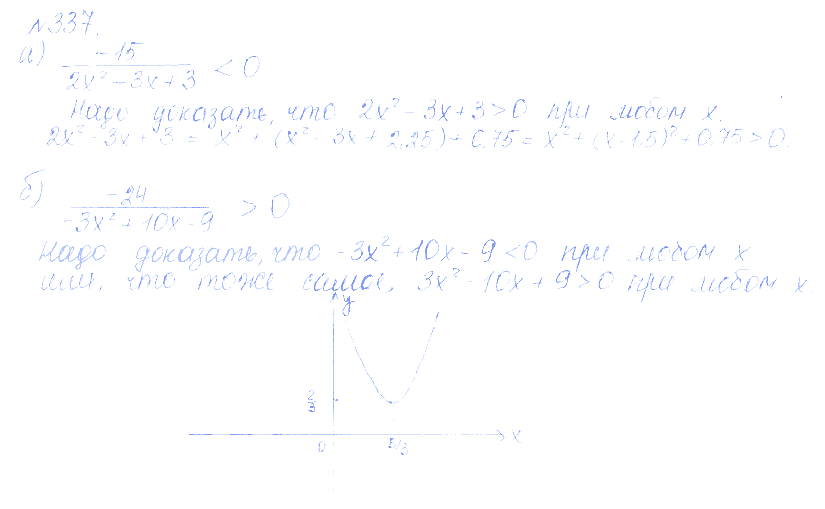 №337.
а) -15 / 2x² - 3x + 3 < 0
Надо доказать, что 2x² - 3x + 3 > 0 при любом x.
2x² - 3x + 3 = x² + (x² - 3x + 2,25) + 0,75 = x² + (x - 1,5)² + 0,75 > 0.
б) -24 / -3x² + 10x - 9 > 0
Надо доказать, что -3x² + 10x - 9 < 0 при любом x
или, что тоже самое, 3x² - 10x + 9 > 0 при любом x.
y
2/3
0 5/3 x